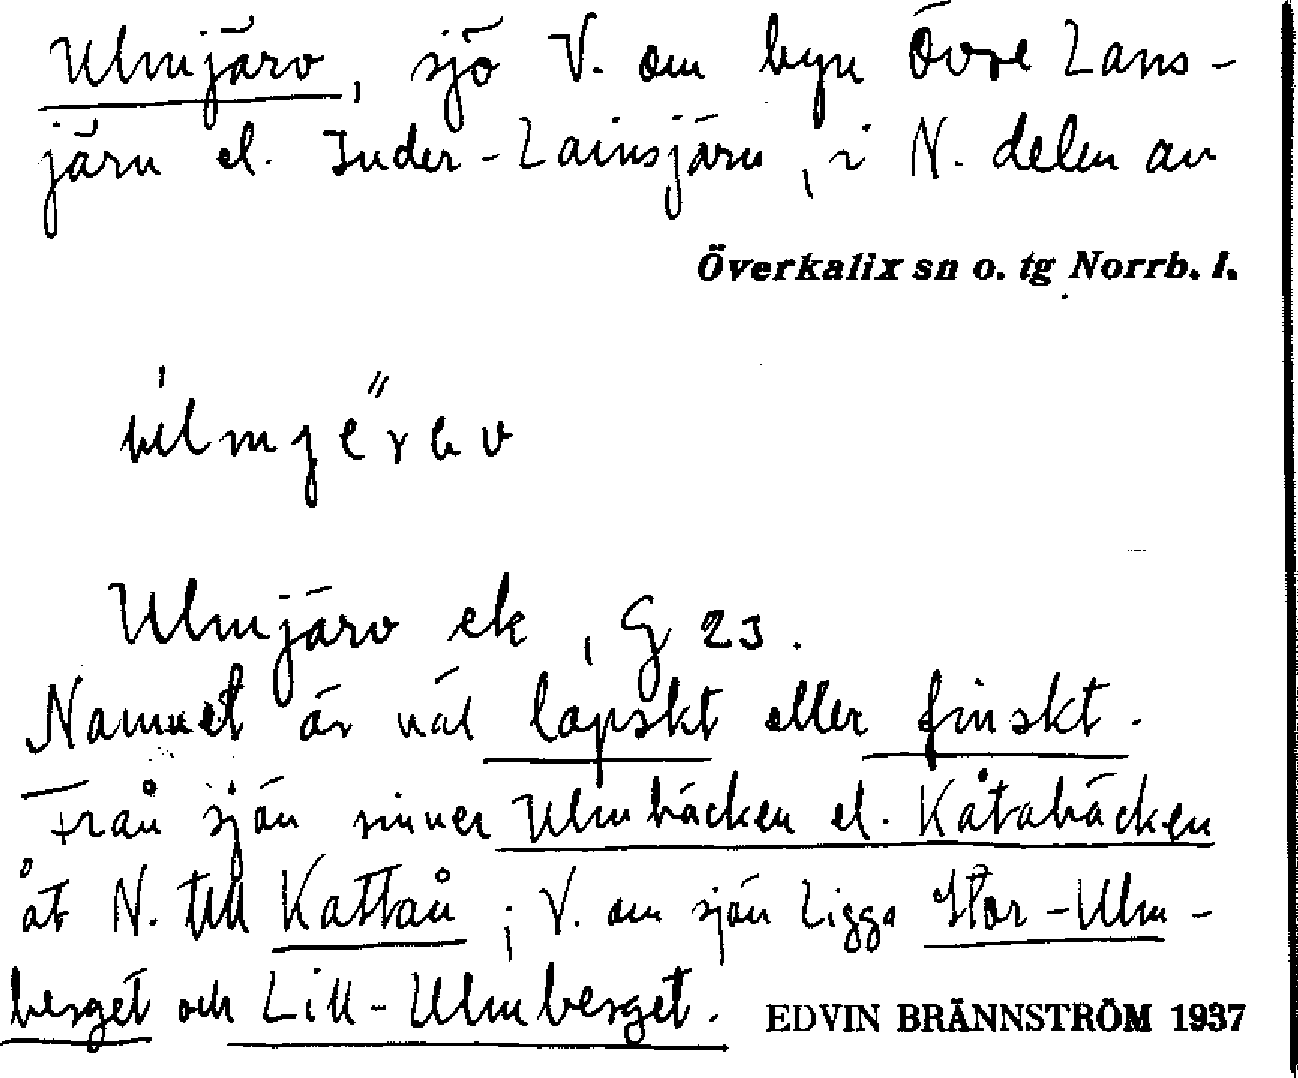 Ulmjärv, sjö V. om byn Övre Lans-
järv el. Inder-Lainsjärv, i N. delen av
Överkalix sn o. tg Norrb. l.
Ulmjärv ek, G 23.
Namnet är väl lapskt eller finskt.
Från sjön rinner Ulmbäcken el. Kåtabäcken
åt N. till Kattån; V. om sjön ligga Stor-Ulm-
berget och Lill-Ulmberget.
EDVIN BRÄNNSTRÖM 1937